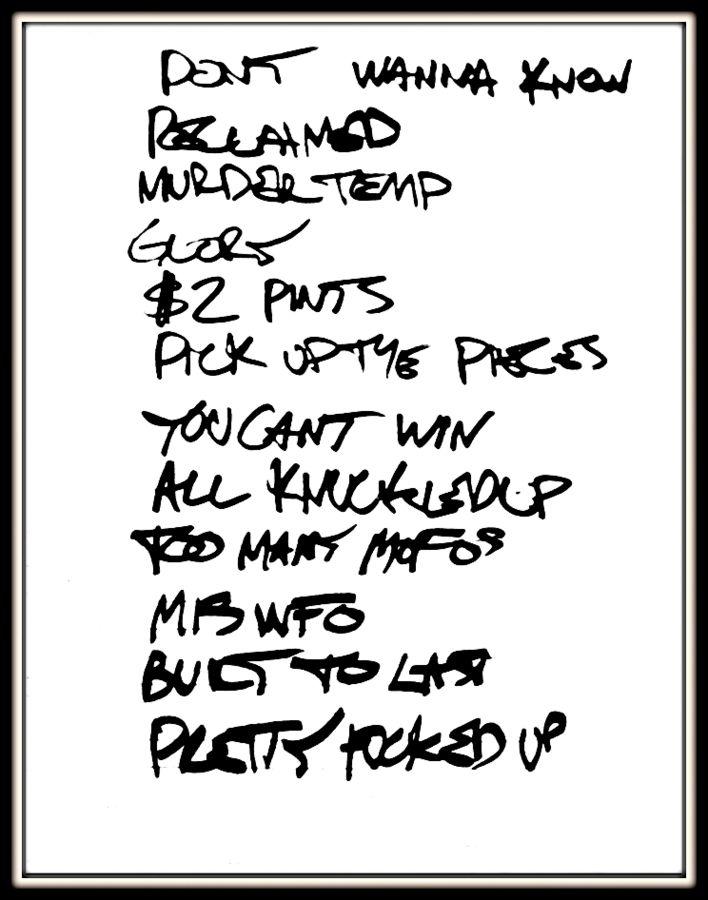 DONT WANNA KNOW
RECLAIMED
MURDER TEMP
GLORY
$2 PINTS
PICK UP THE PIECES
YOU CANT WIN
ALL KNUCKLED UP
TOO MANY MOFOS
MR WFO
BUILT TO LAST
PRETTY FUCKED UP